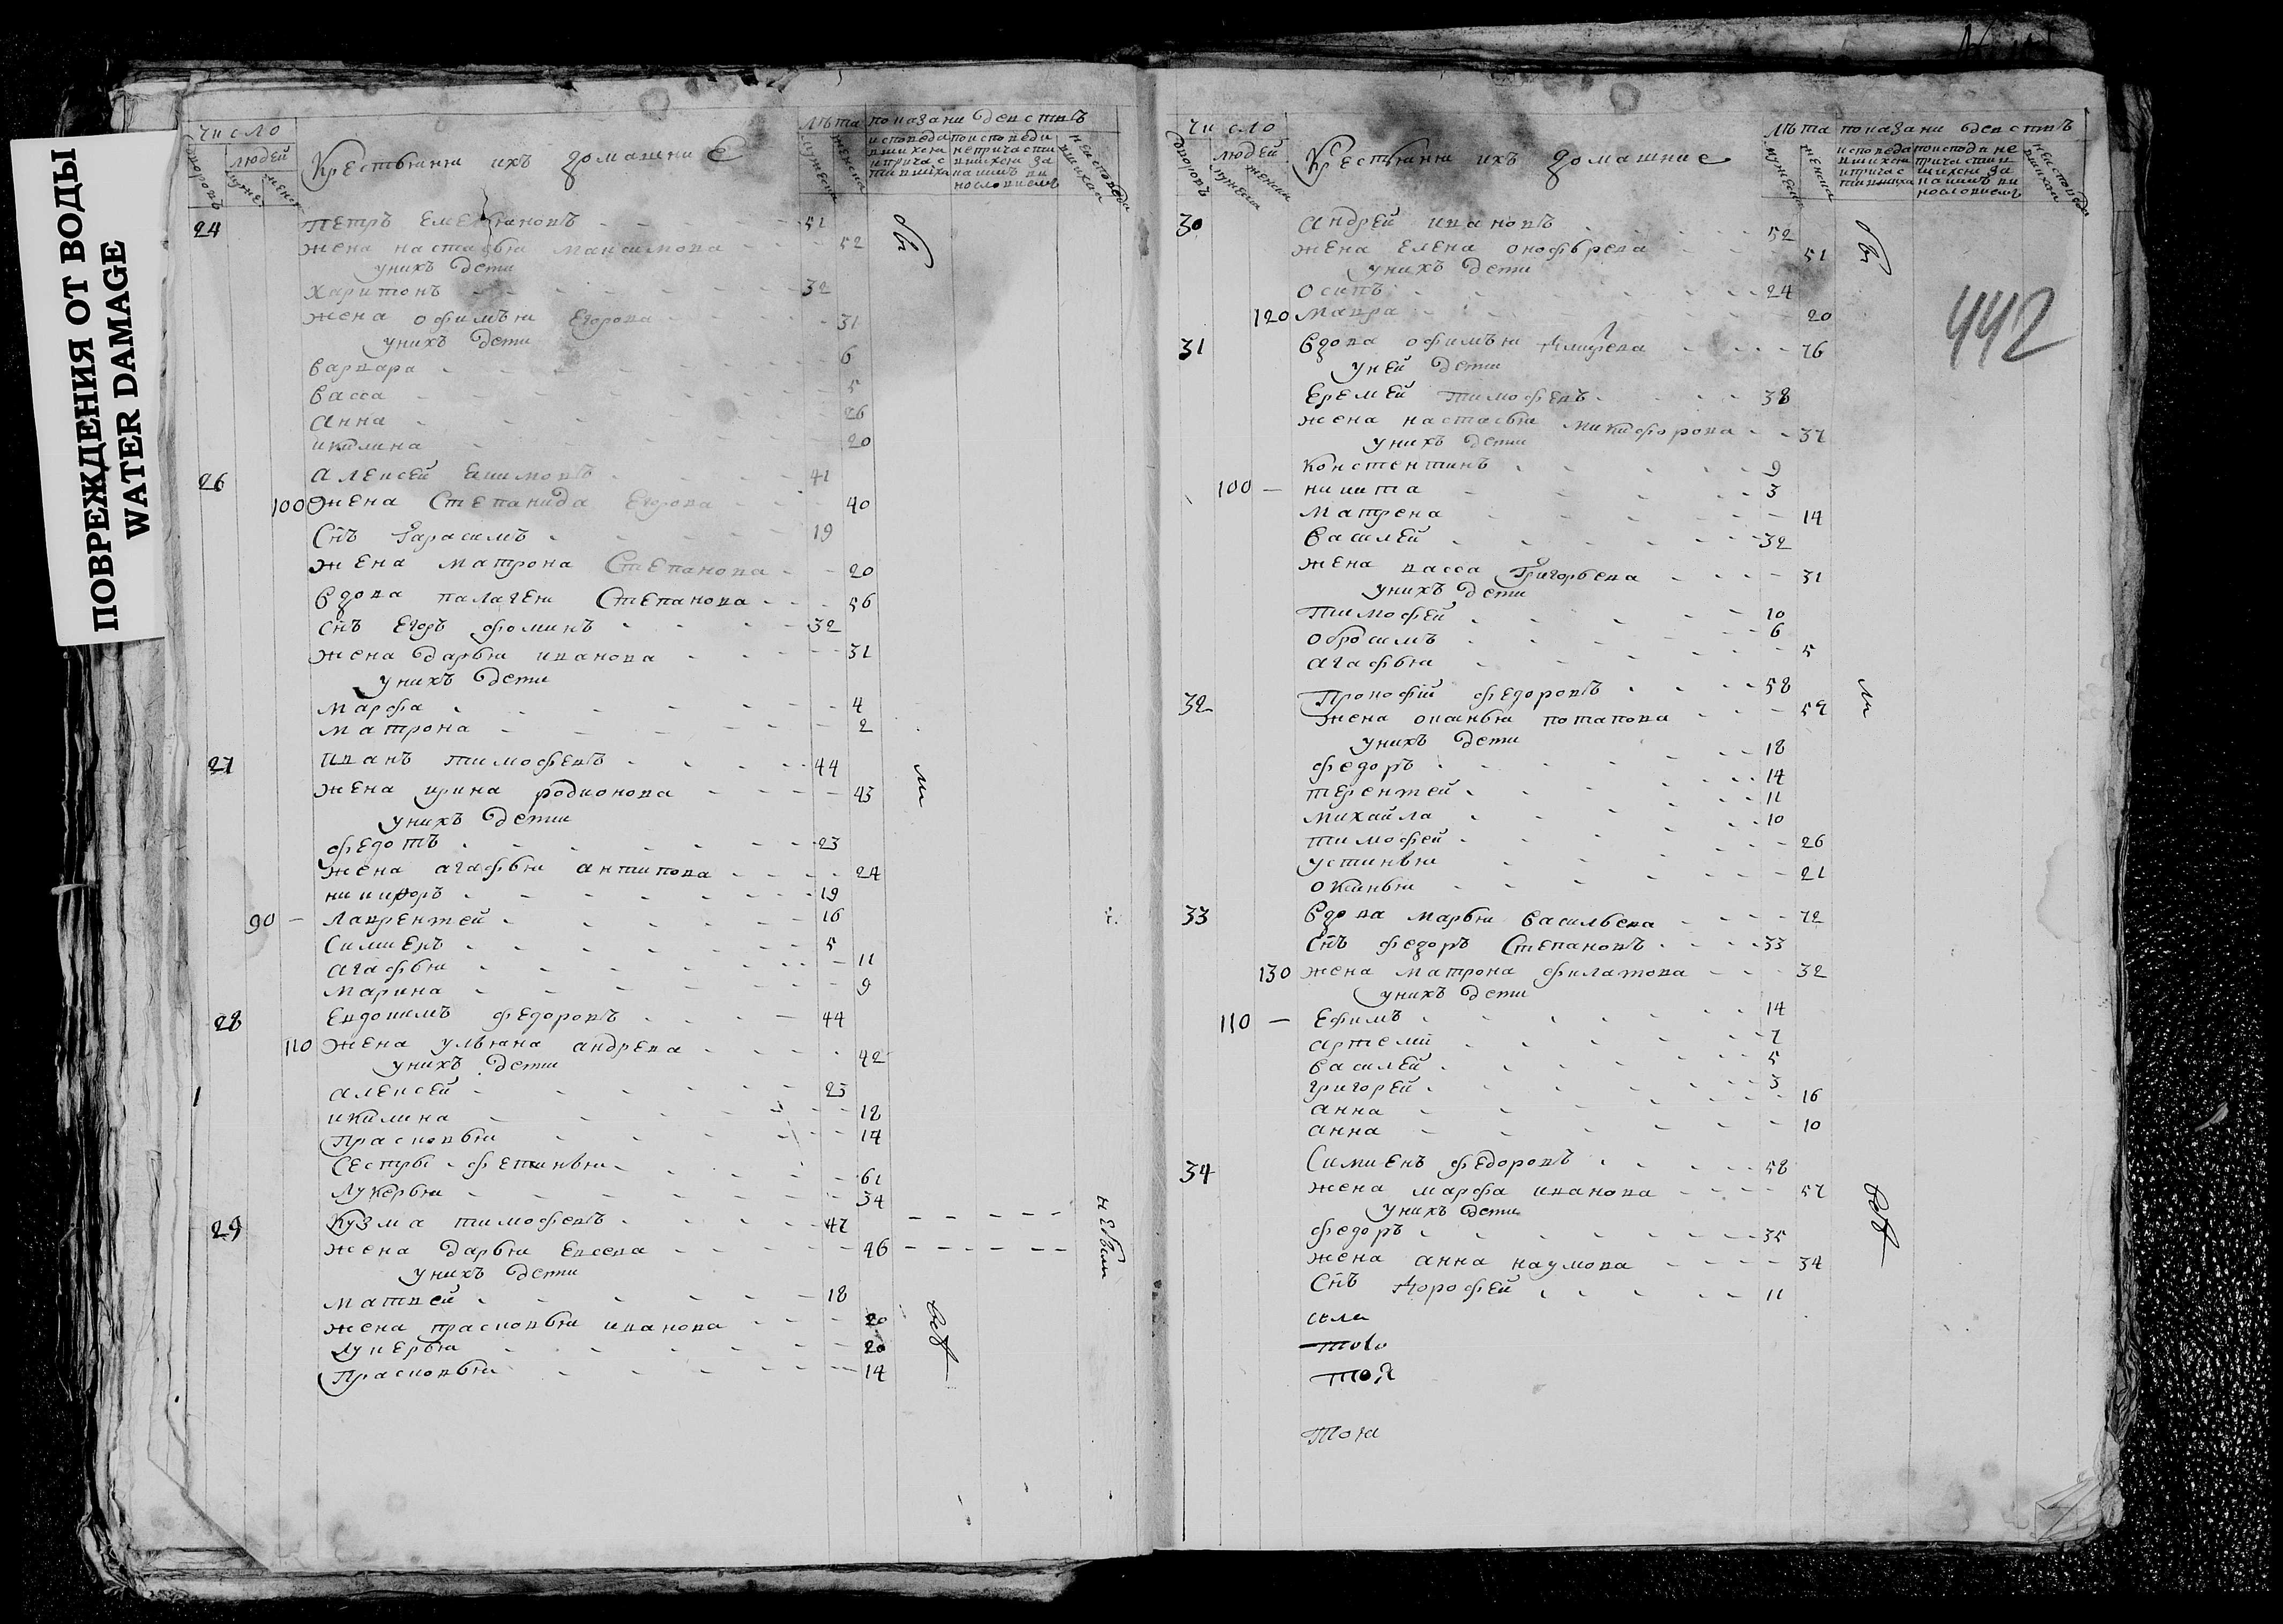 ПОВРЕЖДЕНИЯ ОТ ВОДЫ
WATER DAMAGE
Число
людей
лѣта показани действъ
Крестьяня ихъ домашние
24 Петръ Емельяновъ 51
жена настасья максимова 52
у нихъ дети
харитонъ 32
жена офимья Егорова 31
у нихъ дети
варвара 6
васса 5
анна 26
икилина 20
26 алексей Екимовъ 41
100 жена Степанида Егорова 40
Снъ Гарасимъ 19
жена матрона Степанова 20
вдова палагея Степанова 56
снъ Егоръ фоминъ 32
жена дарья иванова 31
у нихъ дети
марфа 4
матрона 2
27 иванъ тимофевъ 44
жена ирина родионова 43
у нихъ дети
федотъ 23
жена агафья антипова 24
никифоръ 19
90 — лаврентей 16
Симиенъ 5
агафья 11
марина 9
28 Евдокимъ федоровъ 44
110 жена ульяна андрева 42
у нихъ дети
алексей 23
икилина 18
прасковья 17
Сестры фетинья 61
лукерья 34
29 Кузма тимофевъ 47
жена дарья Евсева 46
у нихъ дети
матвей 18
жена прасковья иванова 20
лукерья 20
прасковья 14
не были
Число
людей
лѣта показани действъ
Крестьяня ихъ домашние
30 андрей ивановъ 52
жена Елена онофрева 51
у нихъ дети
осипъ 24
120 мавра 20
442
31 вдова офимья 76
у ней дети
Еремей тимофевъ 38
жена настасья микифорова 37
у нихъ дети
констентинъ 9
100 — никита 3
матрена 14
василей 32
жена васса Григорьева 31
у нихъ дети
тимофей 10
обросимъ 6
агафья 5
32 Прокофий федоровъ 58
жена оксинья потапова 59
у нихъ дети
федоръ 18
терентей 14
михайла 11
тимофей 10
устинья 26
оксинья 21
33 вдова марья васильева 72
Снъ федоръ Степановъ 33
130 жена матрона филатова 32
у нихъ дети
110 — Ефимъ 14
артемий 7
василей 5
григорей 3
анна 16
анна 10
34 Симиенъ федоровъ 58
жена марфа иванова 57
у нихъ дети
федоръ 35
жена анна наумова 34
Снъ дорофей 11
села
того
той
тоя